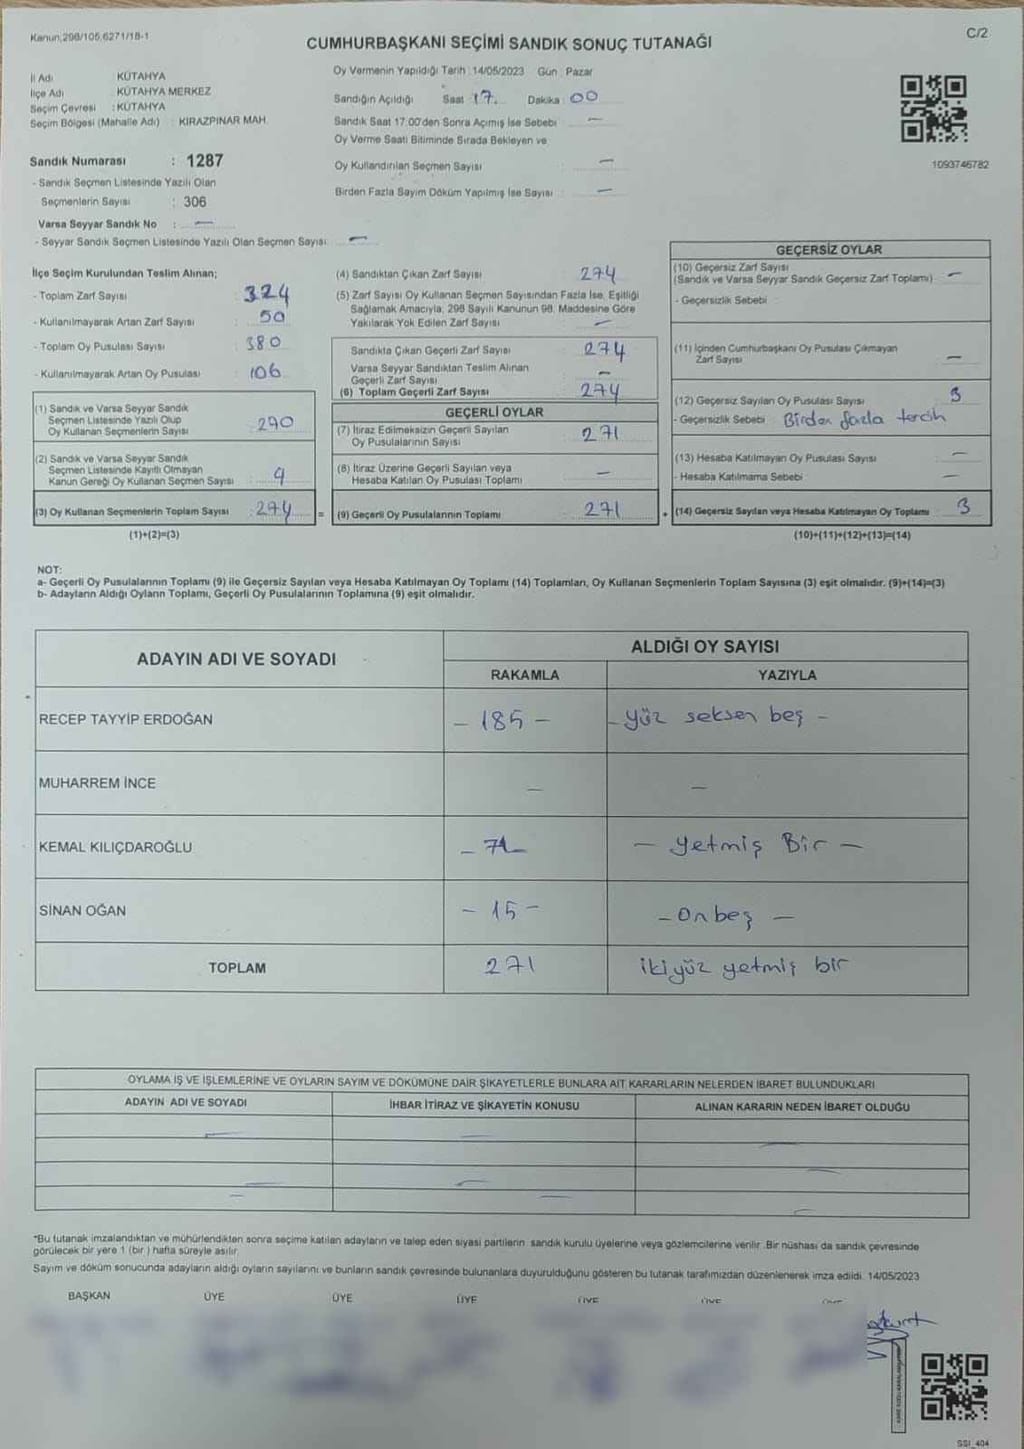 Kanun;298/105,6271/18-1
C/2
CUMHURBAŞKANI SEÇİMİ SANDIK SONUÇ TUTANAĞI
İl Adı : KÜTAHYA
İlçe Adı : KÜTAHYA MERKEZ
Seçim Çevresi : KÜTAHYA
Seçim Bölgesi (Mahalle Adı) : KIRAZPINAR MAH.
Sandık Numarası : 1287
- Sandık Seçmen Listesinde Yazılı Olan
Seçmenlerin Sayısı : 306
Varsa Seyyar Sandık No : —
- Seyyar Sandık Seçmen Listesinde Yazılı Olan Seçmen Sayısı: —
Oy Vermenin Yapıldığı Tarih : 14/05/2023 Gün : Pazar
Sandığın Açıldığı Saat 17. Dakika : 00
Sandık Saat 17:00'den Sonra Açımış İse Sebebi : —
Oy Verme Saati Bitiminde Sırada Bekleyen ve
Oy Kullandırılan Seçmen Sayısı : —
Birden Fazla Sayım Döküm Yapılmış İse Sayısı : —
1093746782
İlçe Seçim Kurulundan Teslim Alınan;
- Toplam Zarf Sayısı : 324
- Kullanılmayarak Artan Zarf Sayısı : 50
- Toplam Oy Pusulası Sayısı : 380
- Kullanılmayarak Artan Oy Pusulası : 106
(1) Sandık ve Varsa Seyyar Sandık
Seçmen Listesinde Yazılı Olup
Oy Kullanan Seçmenlerin Sayısı : 270
(2) Sandık ve Varsa Seyyar Sandık
Seçmen Listesinde Kayıtlı Olmayan
Kanun Gereği Oy Kullanan Seçmen Sayısı : 4
(3) Oy Kullanan Seçmenlerin Toplam Sayısı : 274
(1)+(2)=(3)
(4) Sandıktan Çıkan Zarf Sayısı : 274
(5) Zarf Sayısı Oy Kullanan Seçmen Sayısından Fazla İse, Eşitliği
Sağlamak Amacıyla, 298 Sayılı Kanunun 98. Maddesine Göre
Yakılarak Yok Edilen Zarf Sayısı : —
Sandıkta Çıkan Geçerli Zarf Sayısı : 274
Varsa Seyyar Sandıktan Teslim Alınan
Geçerli Zarf Sayısı : —
(6) Toplam Geçerli Zarf Sayısı : 274
GEÇERLİ OYLAR
(7) İtiraz Edilmeksizin Geçerli Sayılan
Oy Pusulalarının Sayısı : 271
(8) İtiraz Üzerine Geçerli Sayılan veya
Hesaba Katılan Oy Pusulası Toplamı : —
= (9) Geçerli Oy Pusulalarının Toplamı : 271
GEÇERSİZ OYLAR
(10) Geçersiz Zarf Sayısı
(Sandık ve Varsa Seyyar Sandık Geçersiz Zarf Toplamı) : —
- Geçersizlik Sebebi :
(11) İçinden Cumhurbaşkanı Oy Pusulası Çıkmayan
Zarf Sayısı : —
(12) Geçersiz Sayılan Oy Pusulası Sayısı : 3
- Geçersizlik Sebebi : Birden fazla tercih
(13) Hesaba Katılmayan Oy Pusulası Sayısı : —
- Hesaba Katılmama Sebebi : —
+ (14) Geçersiz Sayılan veya Hesaba Katılmayan Oy Toplamı : 3
(10)+(11)+(12)+(13)=(14)
NOT:
a- Geçerli Oy Pusulalarının Toplamı (9) ile Geçersiz Sayılan veya Hesaba Katılmayan Oy Toplamı (14) Toplamları, Oy Kullanan Seçmenlerin Toplam Sayısına (3) eşit olmalıdır. (9)+(14)=(3)
b- Adayların Aldığı Oyların Toplamı, Geçerli Oy Pusulalarının Toplamına (9) eşit olmalıdır.
ADAYIN ADI VE SOYADI
ALDIĞI OY SAYISI
RAKAMLA YAZIYLA
RECEP TAYYİP ERDOĞAN - 185 - - yüz seksen beş -
MUHARREM İNCE — —
KEMAL KILIÇDAROĞLU - 71 - — yetmiş Bir —
SİNAN OĞAN - 15 - - Onbeş —
TOPLAM 271 ikiyüz yetmiş bir
OYLAMA İŞ VE İŞLEMLERİNE VE OYLARIN SAYIM VE DÖKÜMÜNE DAİR ŞİKAYETLERLE BUNLARA AİT KARARLARIN NELERDEN İBARET BULUNDUKLARI
ADAYIN ADI VE SOYADI İHBAR İTİRAZ VE ŞİKAYETİN KONUSU ALINAN KARARIN NEDEN İBARET OLDUĞU
*Bu tutanak imzalandıktan ve mühürlendikten sonra seçime katılan adayların ve talep eden siyasi partilerin sandık kurulu üyelerine veya gözlemcilerine verilir. Bir nüshası da sandık çevresinde
görülecek bir yere 1 (bir ) hafta süreyle asılır.
Sayım ve döküm sonucunda adayların aldığı oyların sayılarını ve bunların sandık çevresinde bulunanlara duyurulduğunu gösteren bu tutanak tarafımızdan düzenlenerek imza edildi. 14/05/2023
BAŞKAN ÜYE ÜYE ÜYE ÜYE ÜYE ÜYE
SSI_404